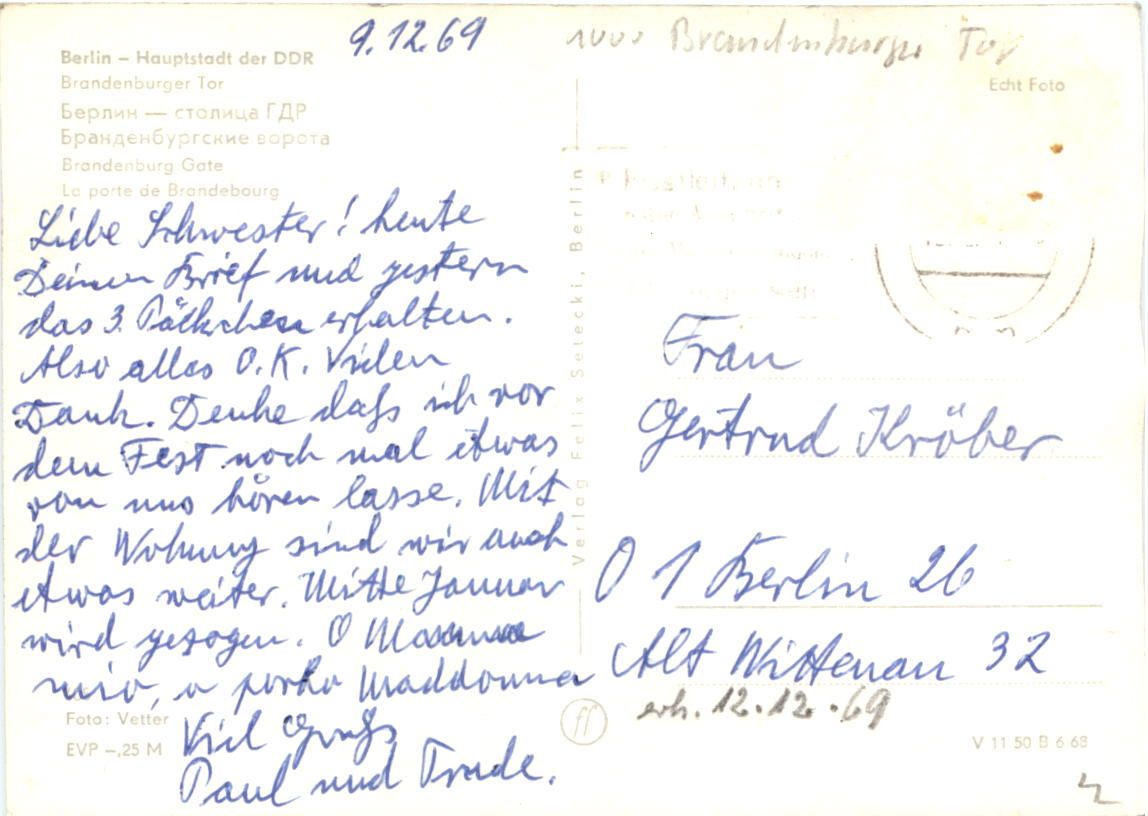 9.12.69
1000 Brandenburger Tor
Berlin – Hauptstadt der DDR
Brandenburger Tor
Берлин — столица ГДР
Бранденбургские ворота
Brandenburg Gate
La porte de Brandebourg
Echt Foto
Liebe Schwester! heute
Deinen Brief und gestern
das 3. Päckchen erhalten.
Also alles O.K. Vielen
Dank. Denke daß ich vor
dem Fest noch mal etwas
von uns hören lasse. Mit
der Wohnung sind wir auch
etwas weiter. Mitte Januar
wird gezogen. O
mio, o porko Maddonna
Viel Gruß
Paul und Trude.
Foto: Vetter
EVP –,25 M
Verlag Felix Setecki, Berlin
ff
Frau
Gertrud Kröber
O 1 Berlin 26
Alt Wittenau 32
erh. 12.12.69
V 11 50 B 6 68